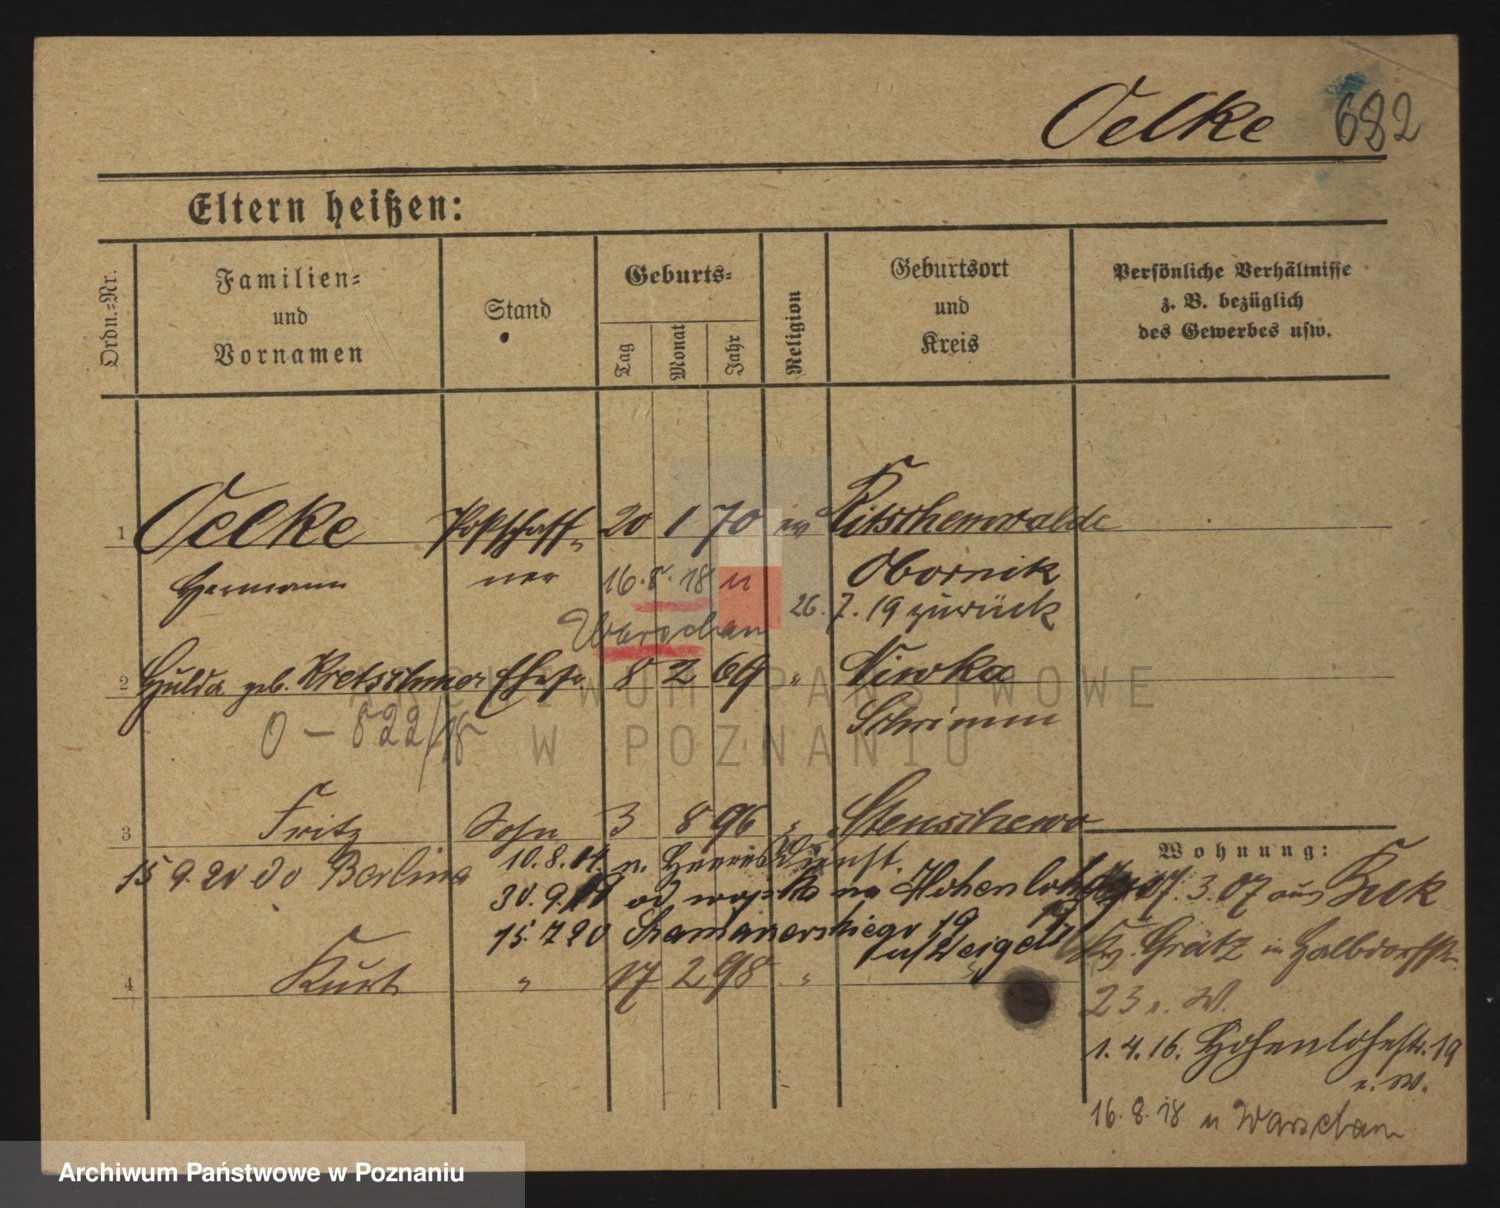 Oelke 682
Eltern heißen:
Ordn.-Nr.
Familien-
und
Vornamen
Stand
Geburts-
Tag
Monat
Jahr
Religion
Geburtsort
und
Kreis
Persönliche Verhältnisse
z. B. bezüglich
des Gewerbes usw.
1 Oelke Postschaff- 20 1 70 ev Ritschenwalde
Hermann ner 16.8.18 n Obornik
Warschau 26.7.19 zurück
2 Hulda geb. Kretschmer Ehefr. 8 2 69 " Niwka
O – 822/18 Schrimm
3 Fritz Sohn 3 8 96 " Stenschewo
15 9.20 do Berlina 10.8.14. n. Heeresdienst.
30.9.19 od wojska na Hohenlohe
15.7.20 Szamarzewskiego 19
u/Weigelt
4 Kurt " 17 2 98 "
Wohnung:
7.3.07 aus Buk
Grätz in Halbdorfstr.
23 b. W.
1.4.16. Hohenlohestr. 19
b. W.
16.8.18 n Warschau
ARCHIWUM PAŃSTWOWE
W POZNANIU
Archiwum Państwowe w Poznaniu